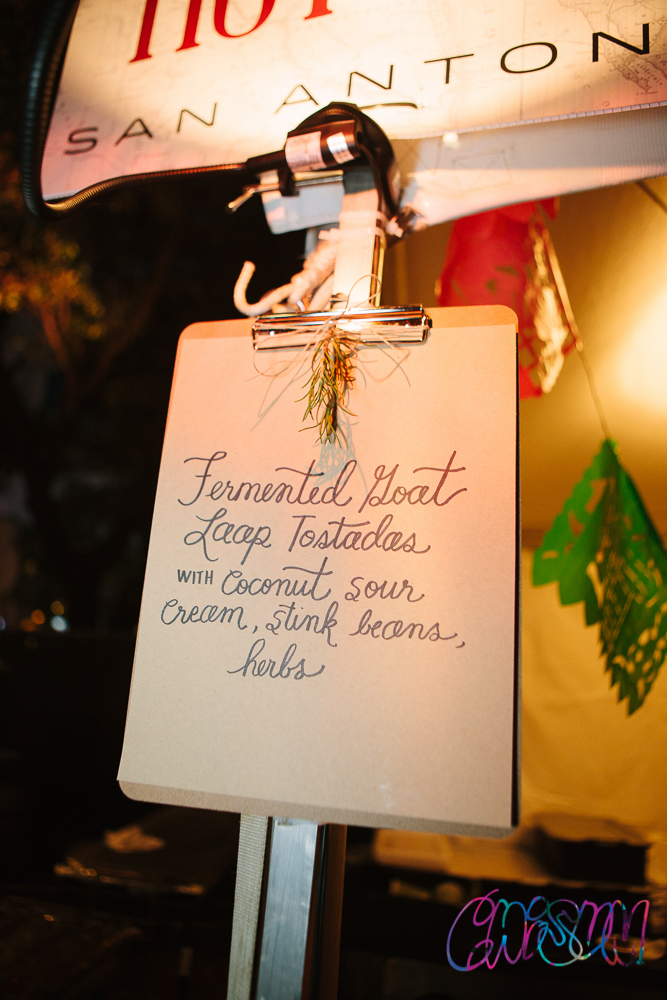 HOT
SAN ANTON
Fermented Goat
Laap Tostadas
WITH Coconut Sour
Cream, Stink beans,
herbs